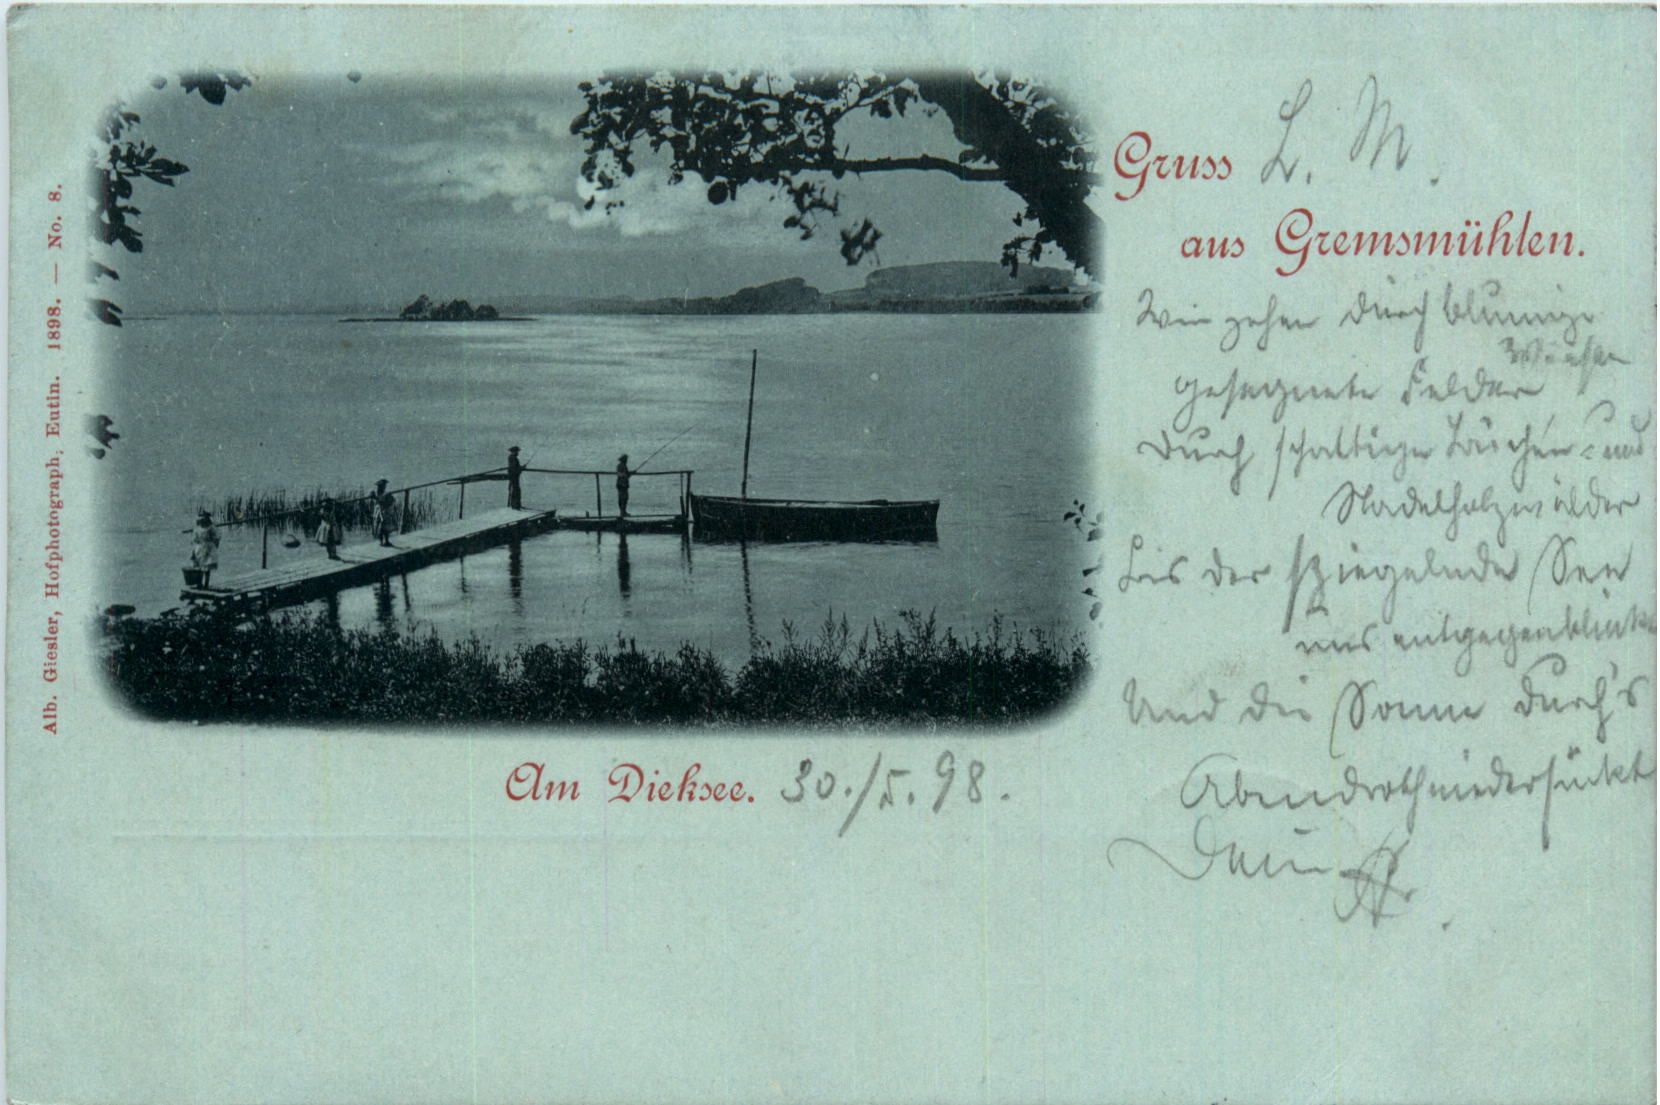 Alb. Giesler, Hofphotograph, Eutin. 1898. — No. 8.
Gruss L. M.
aus Gremsmühlen.
Wir gehen durch blumige
Wiesen
gesegnete Felder
Durch schattige Buchen- und
Nadelholzwälder
Bis der spiegelnde See
uns entgegenblinkt
Und die Sonne durch's
Abendroth niedersinkt
Dein
Am Dieksee. 30./5.98.